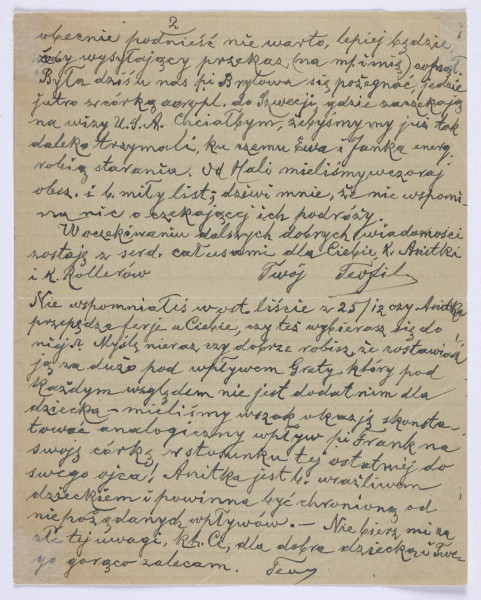 2
obecnie podnieść nie warto, lepiej będzie
żeby wysyłający przekaz (na m. imię) cofnął.
Była dziś u nas p. Brylowa się pożegnać, jedzie
jutro z córką aeropl. do Szwecji, gdzie zaczekają
na wizy U.S.A. Chciałbym, żebyśmy my już tak
daleko trzymali, ku czemu Ewa i Janka energ.
robią starania. Od Hali mieliśmy wczoraj
obsz. i b. miły list; dziwi mnie, że nie wspomi-
na nic o czekającej ich podróży.
W oczekiwaniu dalszych dobrych wiadomości
zostaję z serd. całusami dla Ciebie, k. Anitki
i k. Rollerów Twój Teofil
Nie wspomniałeś w ost. liście z 25/12 czy Anitka
przepędza ferje u Ciebie, czy też wybierasz się do
niej? Myślę nieraz czy dobrze robisz, że zostawiasz
ją za dużo pod wpływem Grety, który pod
każdym względem nie jest dodatnim dla
dziecka – mieliśmy wszak okazję skonsta-
tować analogiczny wpływ p. Frank na
swoją córkę w stosunku tej ostatniej do
swego ojca! Anitka jest b. wrażliwem
dzieckiem i powinna być chronioną od
niepożądanych wpływów. – Nie bierz mi za
złe tej uwagi, którą Ci, dla dobra dziecka i Twe-
go gorąco zalecam. Teoś